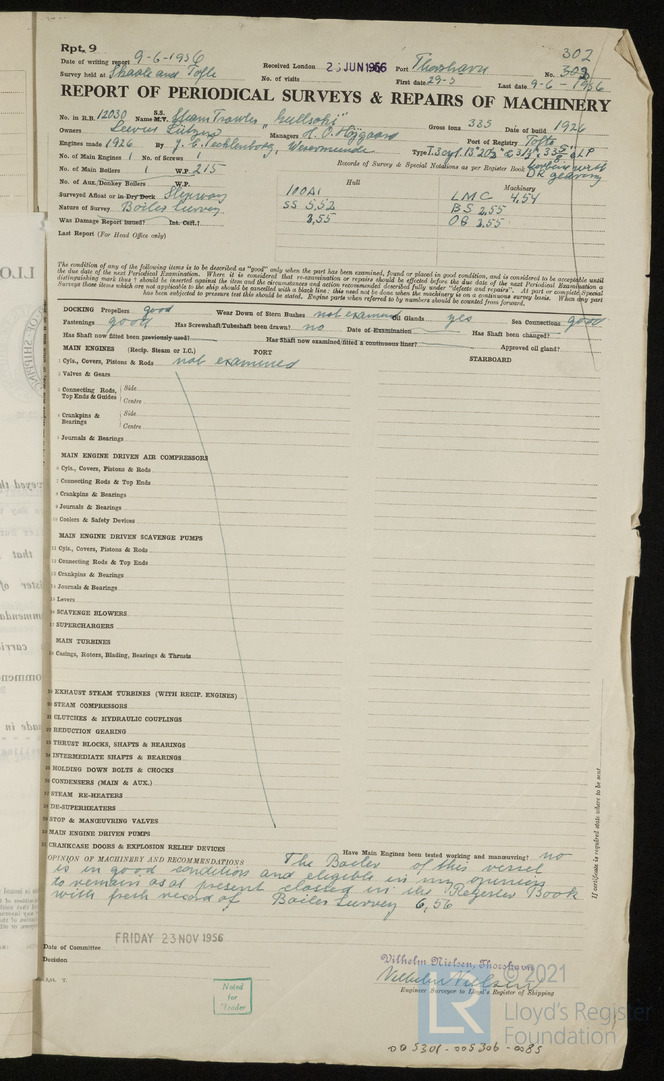 Rpt. 9
302
Date of writing report 9-6-1956
Received London 25 JUN 1956
Port Thorshavn
No. 302
Survey held at Skaale and Tofte
No. of visits
First date 29-5
Last date 9-6-1956
REPORT OF PERIODICAL SURVEYS & REPAIRS OF MACHINERY
No. in R.B. 12030
S.S.
Name M.V. Steam Trawler "Gullsoki"
Gross tons 335
Date of build 1926
Owners
Managers H. O. Højgaard
Port of Registry Tofte
Engines made 1926 By J. C. Tecklenborg, Wesermunde
Type T.3cyl.
No. of Main Engines 1 No. of Screws 1
Records of Survey & Special Notations as per Register Book
DR gearing
No. of Main Boilers 1 W.P. 215
No. of Aux./Donkey Boilers W.P.
Hull
Machinery
Surveyed Afloat or in Dry Dock Slipway
100A1
LMC 4,54
Nature of Survey Boiler Survey
SS 5,52
BS 2,55
Was Damage Report issued? Int. Cert.?
3,55
OG 3,55
Last Report (For Head Office only)
The condition of any of the following items is to be described as "good" only when the part has been examined, found or placed in good condition, and is considered to be acceptable until
the due date of the next Periodical Examination. Where it is considered that re-examination or repairs should be effected before the due date of the next Periodical Examination a
distinguishing mark thus † should be inserted against the item and the circumstances and action recommended described fully under "defects and repairs". At part or complete Special
Surveys those items which are not applicable to the ship should be cancelled with a black line; this need not be done when the machinery is on a continuous survey basis. When any part
has been subjected to pressure test this should be stated. Engine parts when referred to by numbers should be counted from forward.
DOCKING Propellers good Wear Down of Stern Bushes not examined Oil Glands yes Sea Connections good
Fastenings good Has Screwshaft/Tubeshaft been drawn? no Date of Examination Has Shaft been changed?
Has Shaft now fitted been previously used? Has Shaft now examined/fitted a continuous liner? Approved oil gland?
MAIN ENGINES (Recip. Steam or I.C.) PORT STARBOARD
1 Cyls., Covers, Pistons & Rods not examined
2 Valves & Gears
3 Connecting Rods, Top Ends & Guides Side
Centre
4 Crankpins & Bearings Side
Centre
5 Journals & Bearings
MAIN ENGINE DRIVEN AIR COMPRESSORS
6 Cyls., Covers, Pistons & Rods
7 Connecting Rods & Top Ends
8 Crankpins & Bearings
9 Journals & Bearings
10 Coolers & Safety Devices
MAIN ENGINE DRIVEN SCAVENGE PUMPS
11 Cyls., Covers, Pistons & Rods
12 Connecting Rods & Top Ends
13 Crankpins & Bearings
14 Journals & Bearings
15 Levers
16 SCAVENGE BLOWERS
17 SUPERCHARGERS
MAIN TURBINES
18 Casings, Rotors, Blading, Bearings & Thrusts
19 EXHAUST STEAM TURBINES (WITH RECIP. ENGINES)
20 STEAM COMPRESSORS
21 CLUTCHES & HYDRAULIC COUPLINGS
22 REDUCTION GEARING
23 THRUST BLOCKS, SHAFTS & BEARINGS
24 INTERMEDIATE SHAFTS & BEARINGS
25 HOLDING DOWN BOLTS & CHOCKS
26 CONDENSERS (MAIN & AUX.)
27 STEAM RE-HEATERS
28 DE-SUPERHEATERS
29 STOP & MANŒUVRING VALVES
30 MAIN ENGINE DRIVEN PUMPS
31 CRANKCASE DOORS & EXPLOSION RELIEF DEVICES
If certificate is required state where to be sent
Have Main Engines been tested working and manœuvring? no
OPINION OF MACHINERY AND RECOMMENDATIONS The Boiler of this vessel
is in good condition and eligible in my opinion
to remain as at present classed in the Register Book
with fresh record of Boiler Survey 6,56
Date of Committee FRIDAY 23 NOV 1956
Decision
Vilhelm Nielsen, Thorshavn
Vilhelm Nielsen
Engineer Surveyor to Lloyd's Register of Shipping
Noted
for
Header
© 2021
LR
Lloyd's Register
Foundation
005301-005306-0085